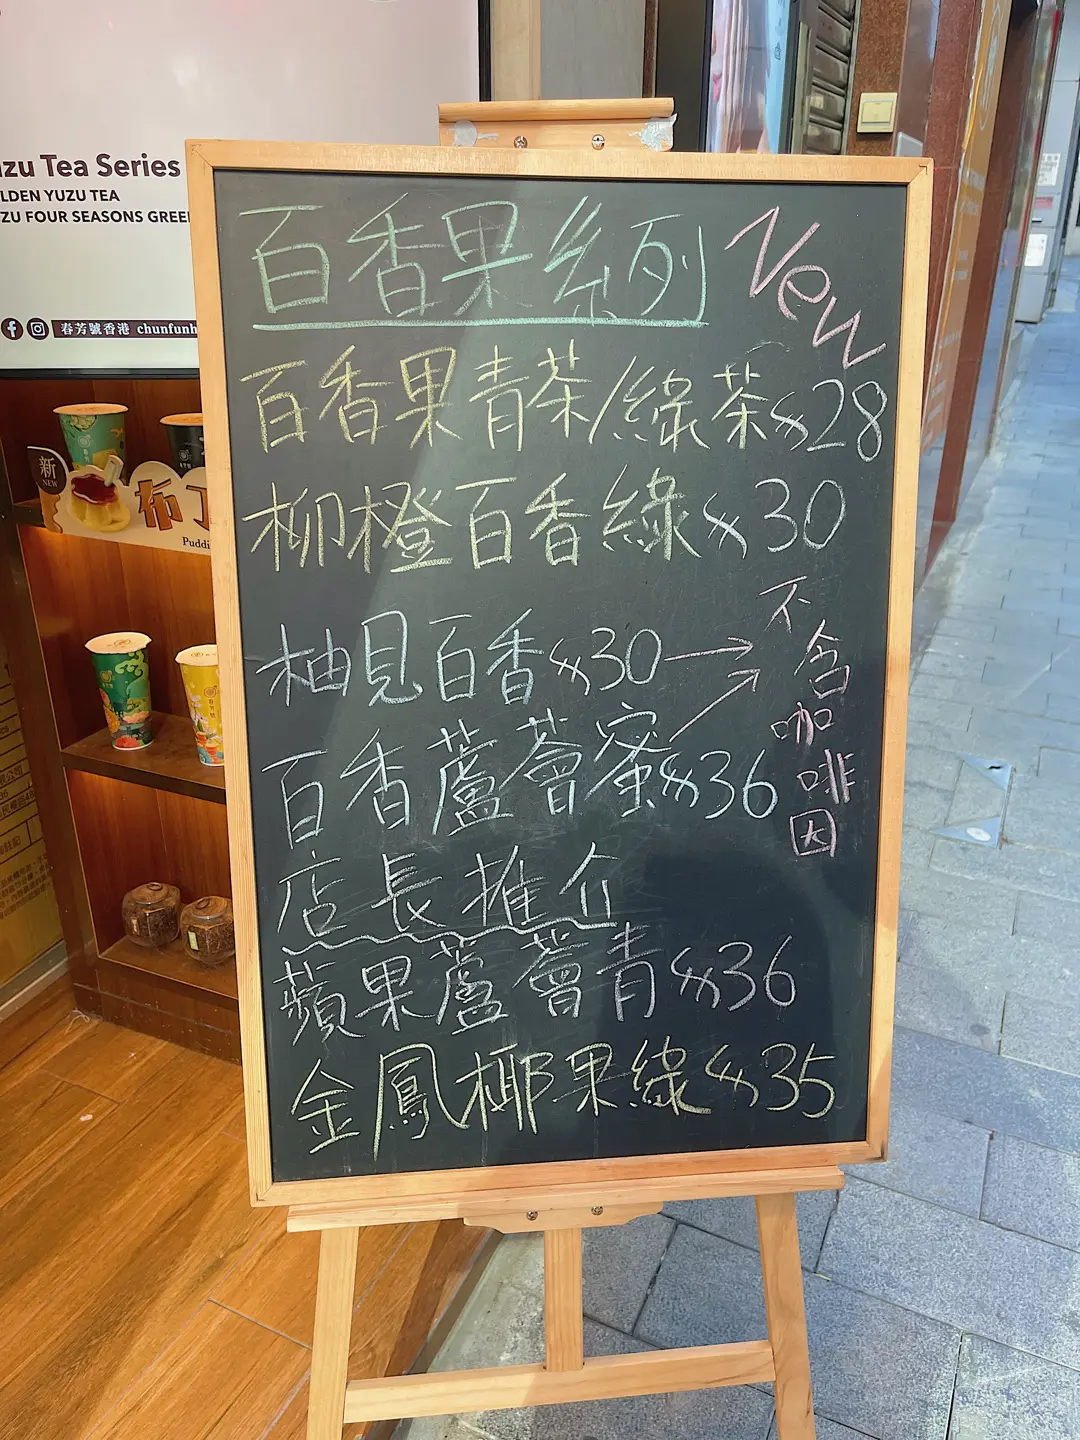 uzu Tea Series
LDEN YUZU TEA
ZU FOUR SEASONS GREE
春芳號香港 chunfunh
新
NEW
布丁
Puddi
百香果系列
New
百香果青茶/綠茶$28
柳橙百香綠$30
柚見百香$30→
不含咖啡因
百香蘆薈蜜$36
店長推介
蘋果蘆薈青$36
金鳳椰果綠$35